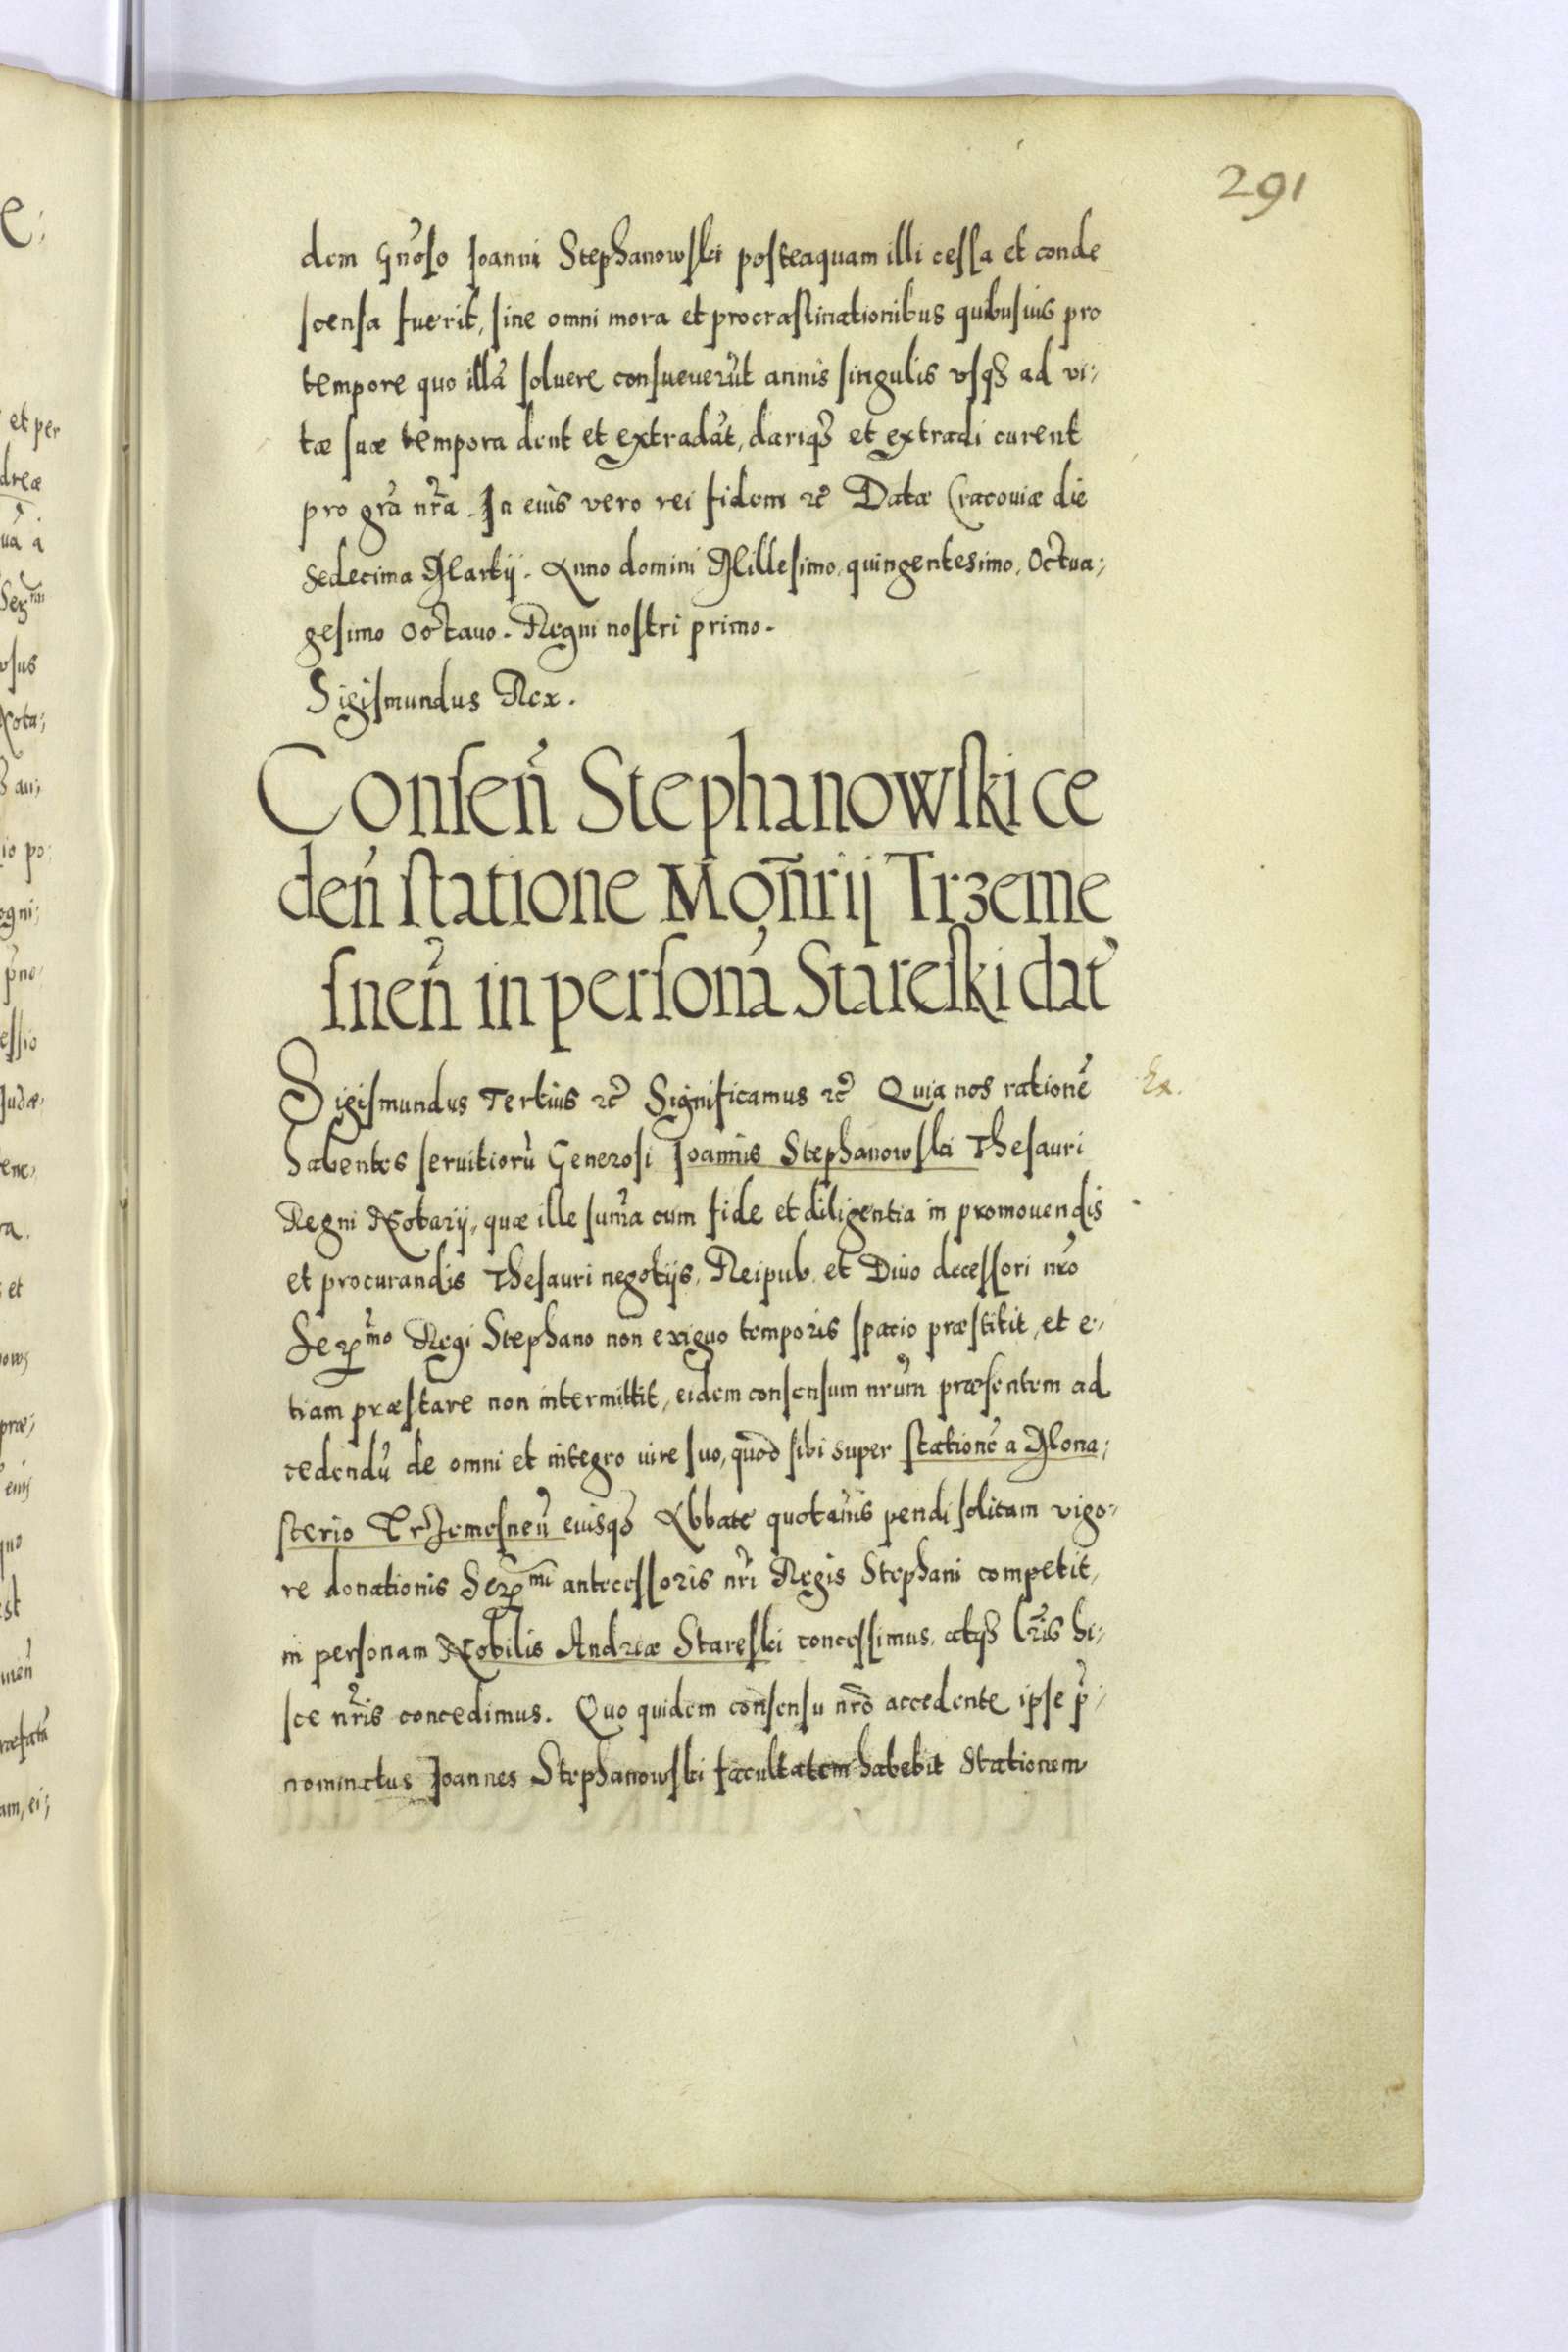 291
dem Gnõso Joanni Stephanowski posteaquam illi cessa et conde
scensa fuerit, sine omni mora et procrastinationibus quibusuis pro
tempore quo illã soluere consueuerũt annis singulis vsq3 ad vi;
tæ suæ tempora dent et extradãt, dariq3 et extradi curent
pro grã nrã. In eius vero rei fidem ꝛc̃ Datæ Cracouiæ die
Sedecima Martij. Anno domini Millesimo, quingentesimo, Octua;
gesimo Octauo. Regni nostri primo.
Sigismundus Rex.
Conseñ Stephanowski ce
deñ statione Moñrij Trzeme
sneñ in personã Stareski dat̃
Sigismundus Tertius ꝛc̃ Significamus ꝛc̃ Quia nos rationẽ
Ex.
habentes seruitiorũ Generosi Joannis Stephanowski Thesauri
Regni Notarij, quæ ille sum̃a cum fide et diligentia in promouendis
et procurandis Thesauri negotijs, Reipub. et Diuo decessori nrõ
Serᵐᵒ Regi Stephano non exiguo temporis spacio præstitit, et e;
tiam præstare non intermittit, eidem consensum nrũm præsentem ad
cedendũ de omni et integro iure suo, quod sibi super stationẽ a Mona;
sterio Trzemesneñ eiusq3 Abbate quotañis pendi solitam vigo;
re donationis Serᵐⁱ antecessoris nrĩ Regis Stephani competit,
in personam Nobilis Andreæ Stareski concessimus, atq3 lrĩs hi;
sce nrĩs concedimus. Quo quidem consensu nrõ accedente ipse p̃;
nominatus Joannes Stephanowski facultatem habebit Stationem